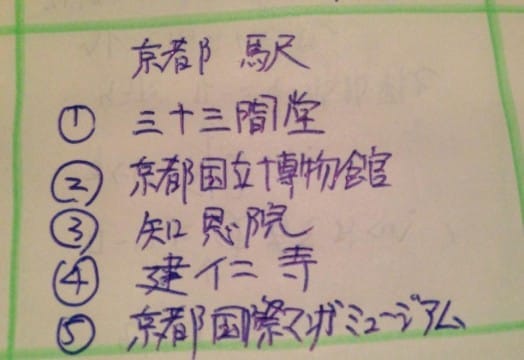 京都駅
① 三十三間堂
② 京都国立博物館
③ 知恩院
④ 建仁寺
⑤ 京都国際マンガミュージアム